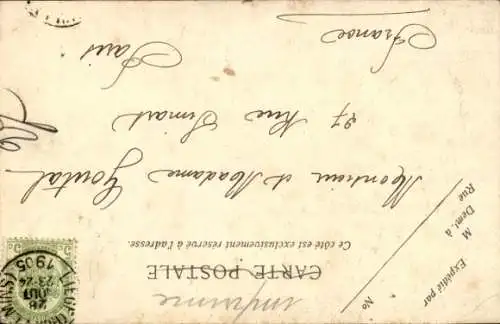 imprimé
CARTE POSTALE
Ce côté est exclusivement réservé à l'adresse.
Expédié par
M
Demt. à
Rue
No
Monsieur et Madame Goutal
27 Rue Simart
Paris
France
28
OUT
23-24
1905
5
5